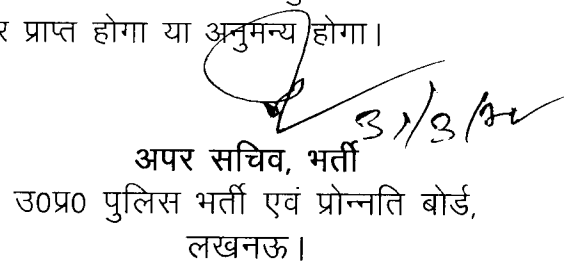 र प्राप्त होगा या अनुमन्य होगा।
अपर सचिव, भर्ती
उ0प्र0 पुलिस भर्ती एवं प्रोन्नति बोर्ड,
लखनऊ।